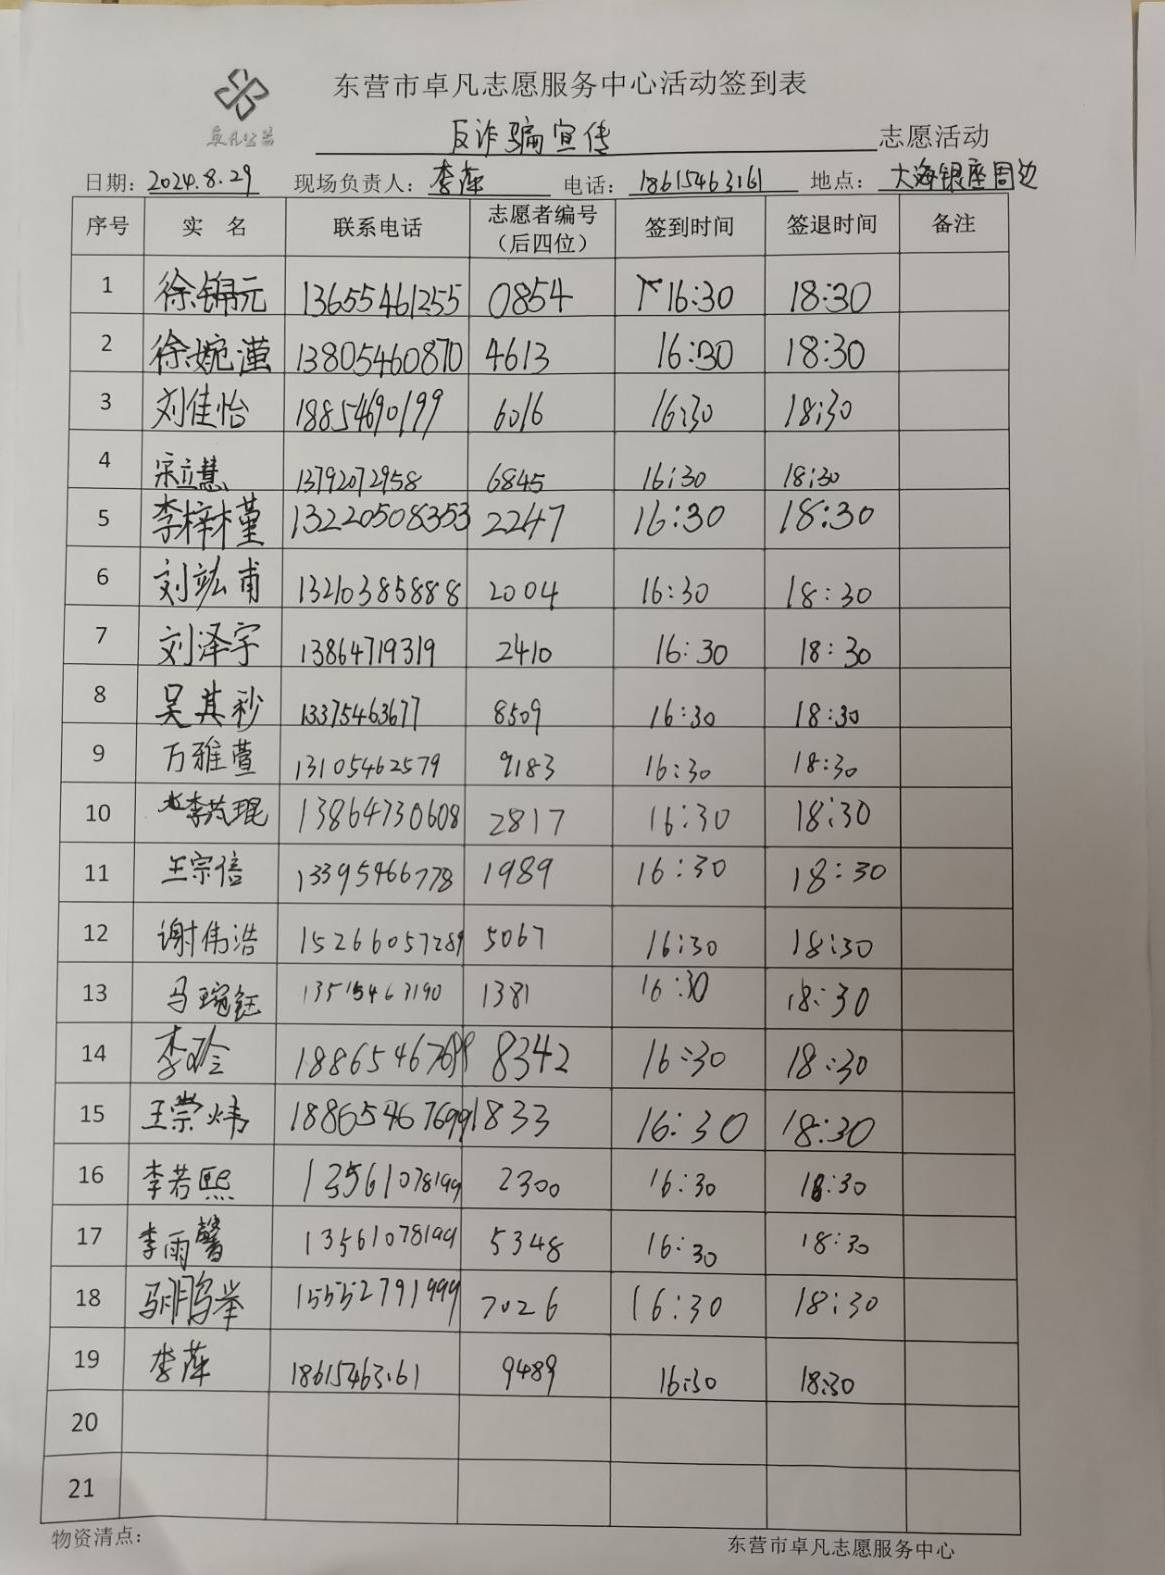 东营市卓凡志愿服务中心活动签到表
卓凡公益
反诈骗宣传 志愿活动
日期: 2024.8.29 现场负责人: 李萍 电话: 18615463161 地点: 大海银座周边
序号 实 名 联系电话 志愿者编号（后四位） 签到时间 签退时间 备注
1 徐锦元 13655461255 0854 下16:30 18:30
2 徐婉潼 13805460870 4613 16:30 18:30
3 刘佳怡 18854690199 6016 16:30 18:30
4 宋立慧 13792072958 6845 16:30 18:30
5 李梓槿 13220508353 2247 16:30 18:30
6 刘竑甫 13210385888 2004 16:30 18:30
7 刘泽宇 13864719319 2410 16:30 18:30
8 吴其秒 13375463677 8509 16:30 18:30
9 万雅萱 13105462579 9183 16:30 18:30
10 李芃琨 13864730608 2817 16:30 18:30
11 王宗信 13395466778 1989 16:30 18:30
12 谢伟浩 15266057289 5067 16:30 18:30
13 马琬钰 13515463190 1381 16:30 18:30
14 李玲 8342 16:30 18:30
15 王崇炜 18865467699 1833 16:30 18:30
16 李若熙 13561078199 2300 16:30 18:30
17 李雨馨 13561078199 5348 16:30 18:30
18 马鹏举 15552791999 7026 16:30 18:30
19 李萍 18615463161 9489 16:30 18:30
20
21
物资清点:
东营市卓凡志愿服务中心